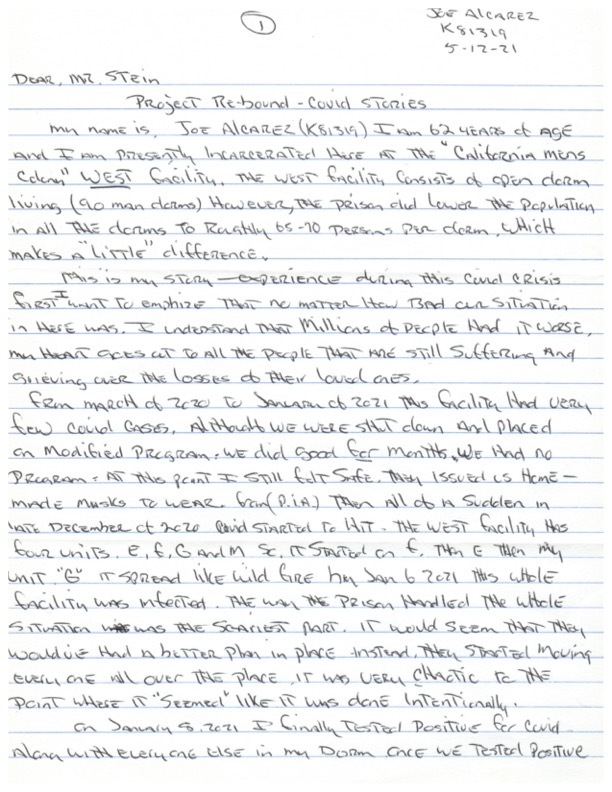 1
JOE ALCAREZ
K81319
5-12-21
DEAR, MR. STEIN
PROJECT RE-BOUND - COVID STORIES
MY NAME IS, JOE ALCAREZ (K81319) I AM 62 YEARS OF AGE
AND I AM PRESENTLY INCARCERATED HERE AT THE "CALIFORNIA MENS
COLONY" WEST FACILITY. THE WEST FACILITY CONSISTS OF OPEN DORM
LIVING (90 MAN DORMS) HOWEVER, THE PRISON DID LOWER THE POPULATION
IN ALL THE DORMS TO ROUGHLY 65-70 PERSONS PER DORM, WHICH
MAKES A "LITTLE" DIFFERENCE.
THIS IS MY STORY — EXPERIENCE DURING THIS COVID CRISIS
FIRST I WANT TO EMPHIZE THAT NO MATTER HOW BAD OUR SITUATION
IN HERE WAS. I UNDERSTAND THAT MILLIONS OF PEOPLE HAD IT WORSE,
MY HEART GOES OUT TO ALL THE PEOPLE THAT ARE STILL SUFFERING AND
GRIEVING OVER THE LOSSES OF THEIR LOVED ONES.
FROM MARCH OF 2020 TO JANUARY OF 2021 THIS FACILITY HAD VERY
FEW COVID CASES, ALTHOUGH WE WERE SHUT DOWN AND PLACED
ON MODIFIED PROGRAM. WE DID GOOD FOR MONTHS, WE HAD NO
PROGRAM. AT THIS POINT I STILL FELT SAFE. THEY ISSUED US HOME-
MADE MASKS TO WEAR. FROM (P.I.A.) THEN ALL OF A SUDDEN IN
LATE DECEMBER OF 2020 COVID STARTED TO HIT. THE WEST FACILITY HAS
FOUR UNITS. E, F, G AND M SO, IT STARTED ON F, THEN E THEN MY
UNIT "G" IT SPREAD LIKE WILD FIRE BY JAN 6 2021 THIS WHOLE
FACILITY WAS INFECTED. THE WAY THE PRISON HANDLED THE WHOLE
SITUATION WAS THE SCARIEST PART. IT WOULD SEEM THAT THEY
WOULD'VE HAD A BETTER PLAN IN PLACE INSTEAD, THEY STARTED MOVING
EVERY ONE ALL OVER THE PLACE, IT WAS VERY CHAOTIC TO THE
POINT WHERE IT "SEEMED" LIKE IT WAS DONE INTENTIONALLY.
ON JANUARY 8, 2021 I FINALLY TESTED POSITIVE FOR COVID
ALONG WITH EVERYONE ELSE IN MY DORM. ONCE WE TESTED POSITIVE